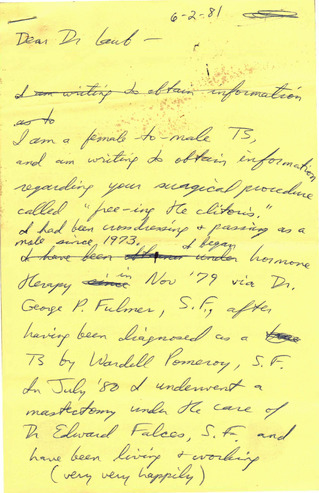 6-2-81
Dear Dr Laub —
I am writing to obtain information
as to
I am a female-to-male TS,
and am writing to obtain information
regarding your surgical procedure
called "free-ing the clitoris."
I had been crossdressing & passing as a
male since 1973. I began
I have been under hormone
therapy since in Nov '79 via Dr.
George P. Fulmer, S.F., after
having been diagnosed as a
TS by Wardell Pomeroy, S.F.
In July '80 I underwent a
mastectomy under the care of
Dr Edward Falces, S.F. and
have been living & working
(very very happily)